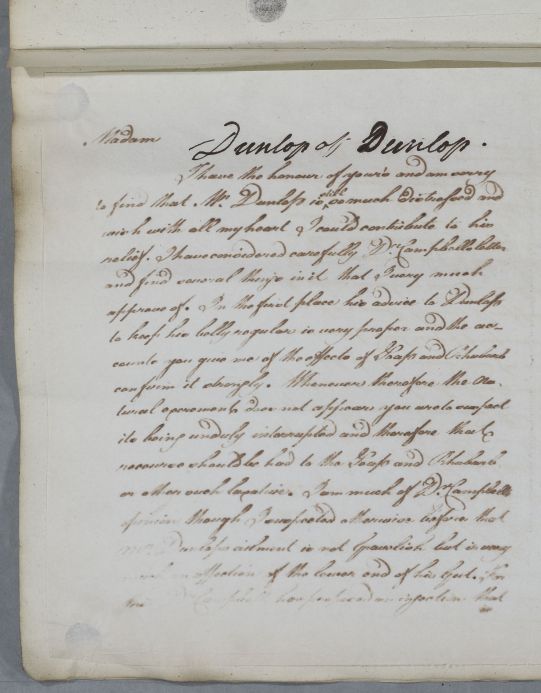 Madam
Dunlop of Dunlop.
I have the honour of yours and am sorry
to find that Mr. Dunlop is still so much distressed and
wish with all my heart I could contribute to his
relief. I have considered carefully Dr. Campbells letter
and find several things in it that I very much
approve of. In the first place his advice to Dunlop
to keep his belly regular is very proper and the ac-
counts you give me of the effects of Soap and Rhubarb
confirm it strongly. Whenever therefore the na-
tural excrement does not appear you are to suspect
its being unduly interrupted and therefore that
recourse should be had to the Soap and Rhubarb
or other such laxative. I am much of Dr. Campbells
opinion though I suspected otherwise before that
Mr. Dunlops ailment is not Gravelish but is very
much an affection of the lower end of his Gut. For
this Dr. Campbell has proposed an injection that
is